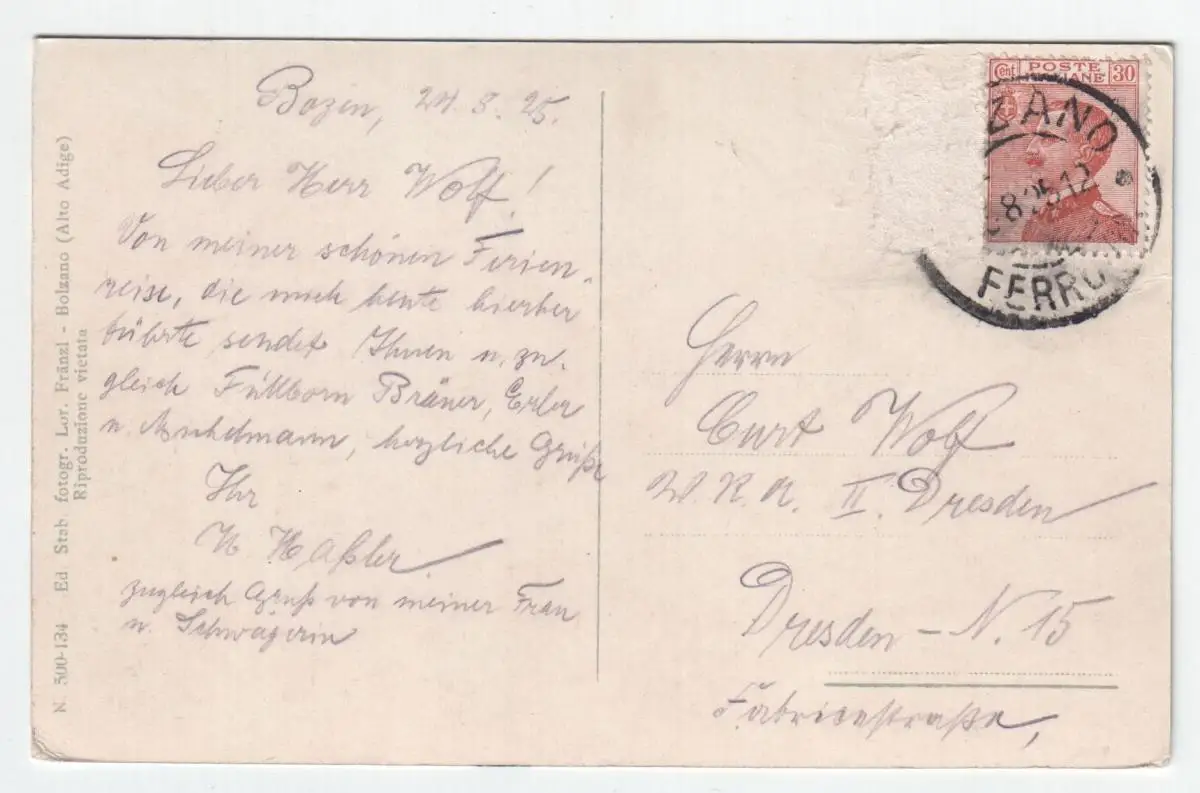 Bozen, 24. 8. 25.
Lieber Herr Wolf!
Von meiner schönen Ferien-
reise, die mich heute hierher
führte sendet Ihnen u. zu-
gleich Füllborn Bräuer, Erler
u. herzliche Grüße
Ihr
Haßler
zugleich Gruß von meiner Frau
u. Schwägerin
N. 500-134 Ed Stab. fotogr. Lor. Fränzl - Bolzano (Alto Adige)
Riproduzione vietata
Cent POSTE 30
ZANO
8 25 12
FERRO
Herrn
Curt Wolf
W. K. A. II. Dresden
Dresden - N. 15
Fabricestraße,